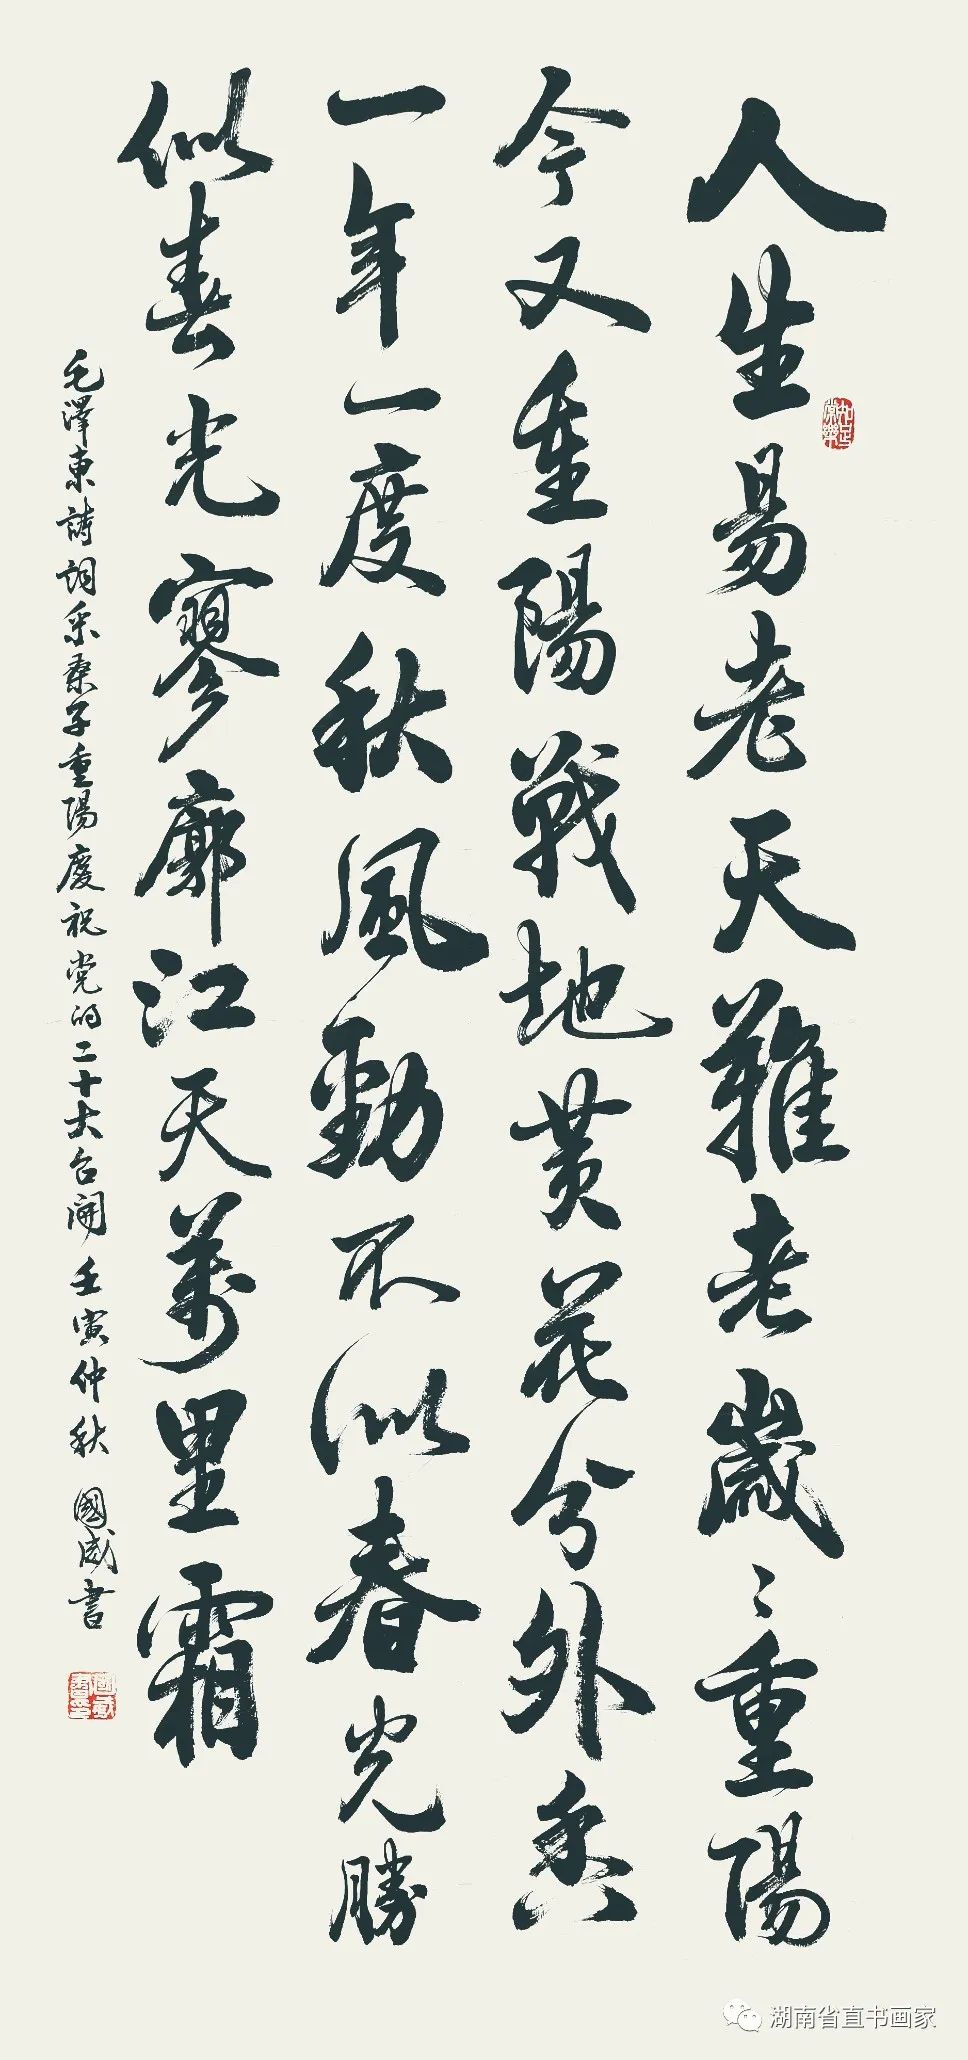 人生易老天難老歲〻重陽
今又重陽戰地黄花分外香
一年一度秋風勁不似春光勝
似春光寥廓江天萬里霜
毛澤東詩詞采桑子重陽慶祝党的二十大召開壬寅仲秋 國威書
知足常樂
湖南省直书画家